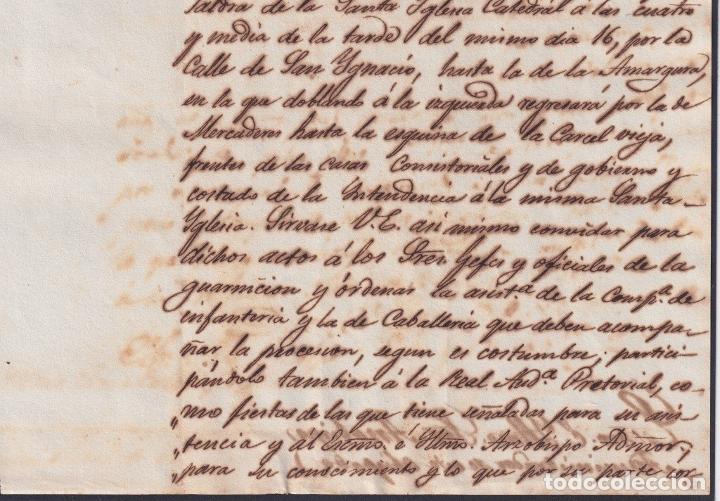 saldrá de la Santa Yglesia Catedrál á las cuatro
y media de la tarde del mismo dia 16, por la
Calle de San Ygnacio, hasta la de la Amargura,
en la que doblando á la izquierda regresará por la de
Mercaderes hasta la esquina de la Carcel vieja,
frentes de las casas Consistoriales y de gobierno y
costado de la Intendencia á la misma Santa
Yglesia. Sirvase V.E. asi mismo convidar para
dichos actos á los Sres. Gefes y oficiales de la
guarnicion y órdenar la asist.a de la Comp.a de
infanteria y la de Caballeria que deben acompa-
ñar la procesion, segun es costumbre; partici-
pándolo tambien á la Real Aud.a Pretorial, co-
„mo fiestas de las que tiene señaladas para su asis
„tencia y ál Exmo. é Yllmo. Arzobispo Admor,
„para su conocimiento y lo que por su parte cor
todocoleccion.net